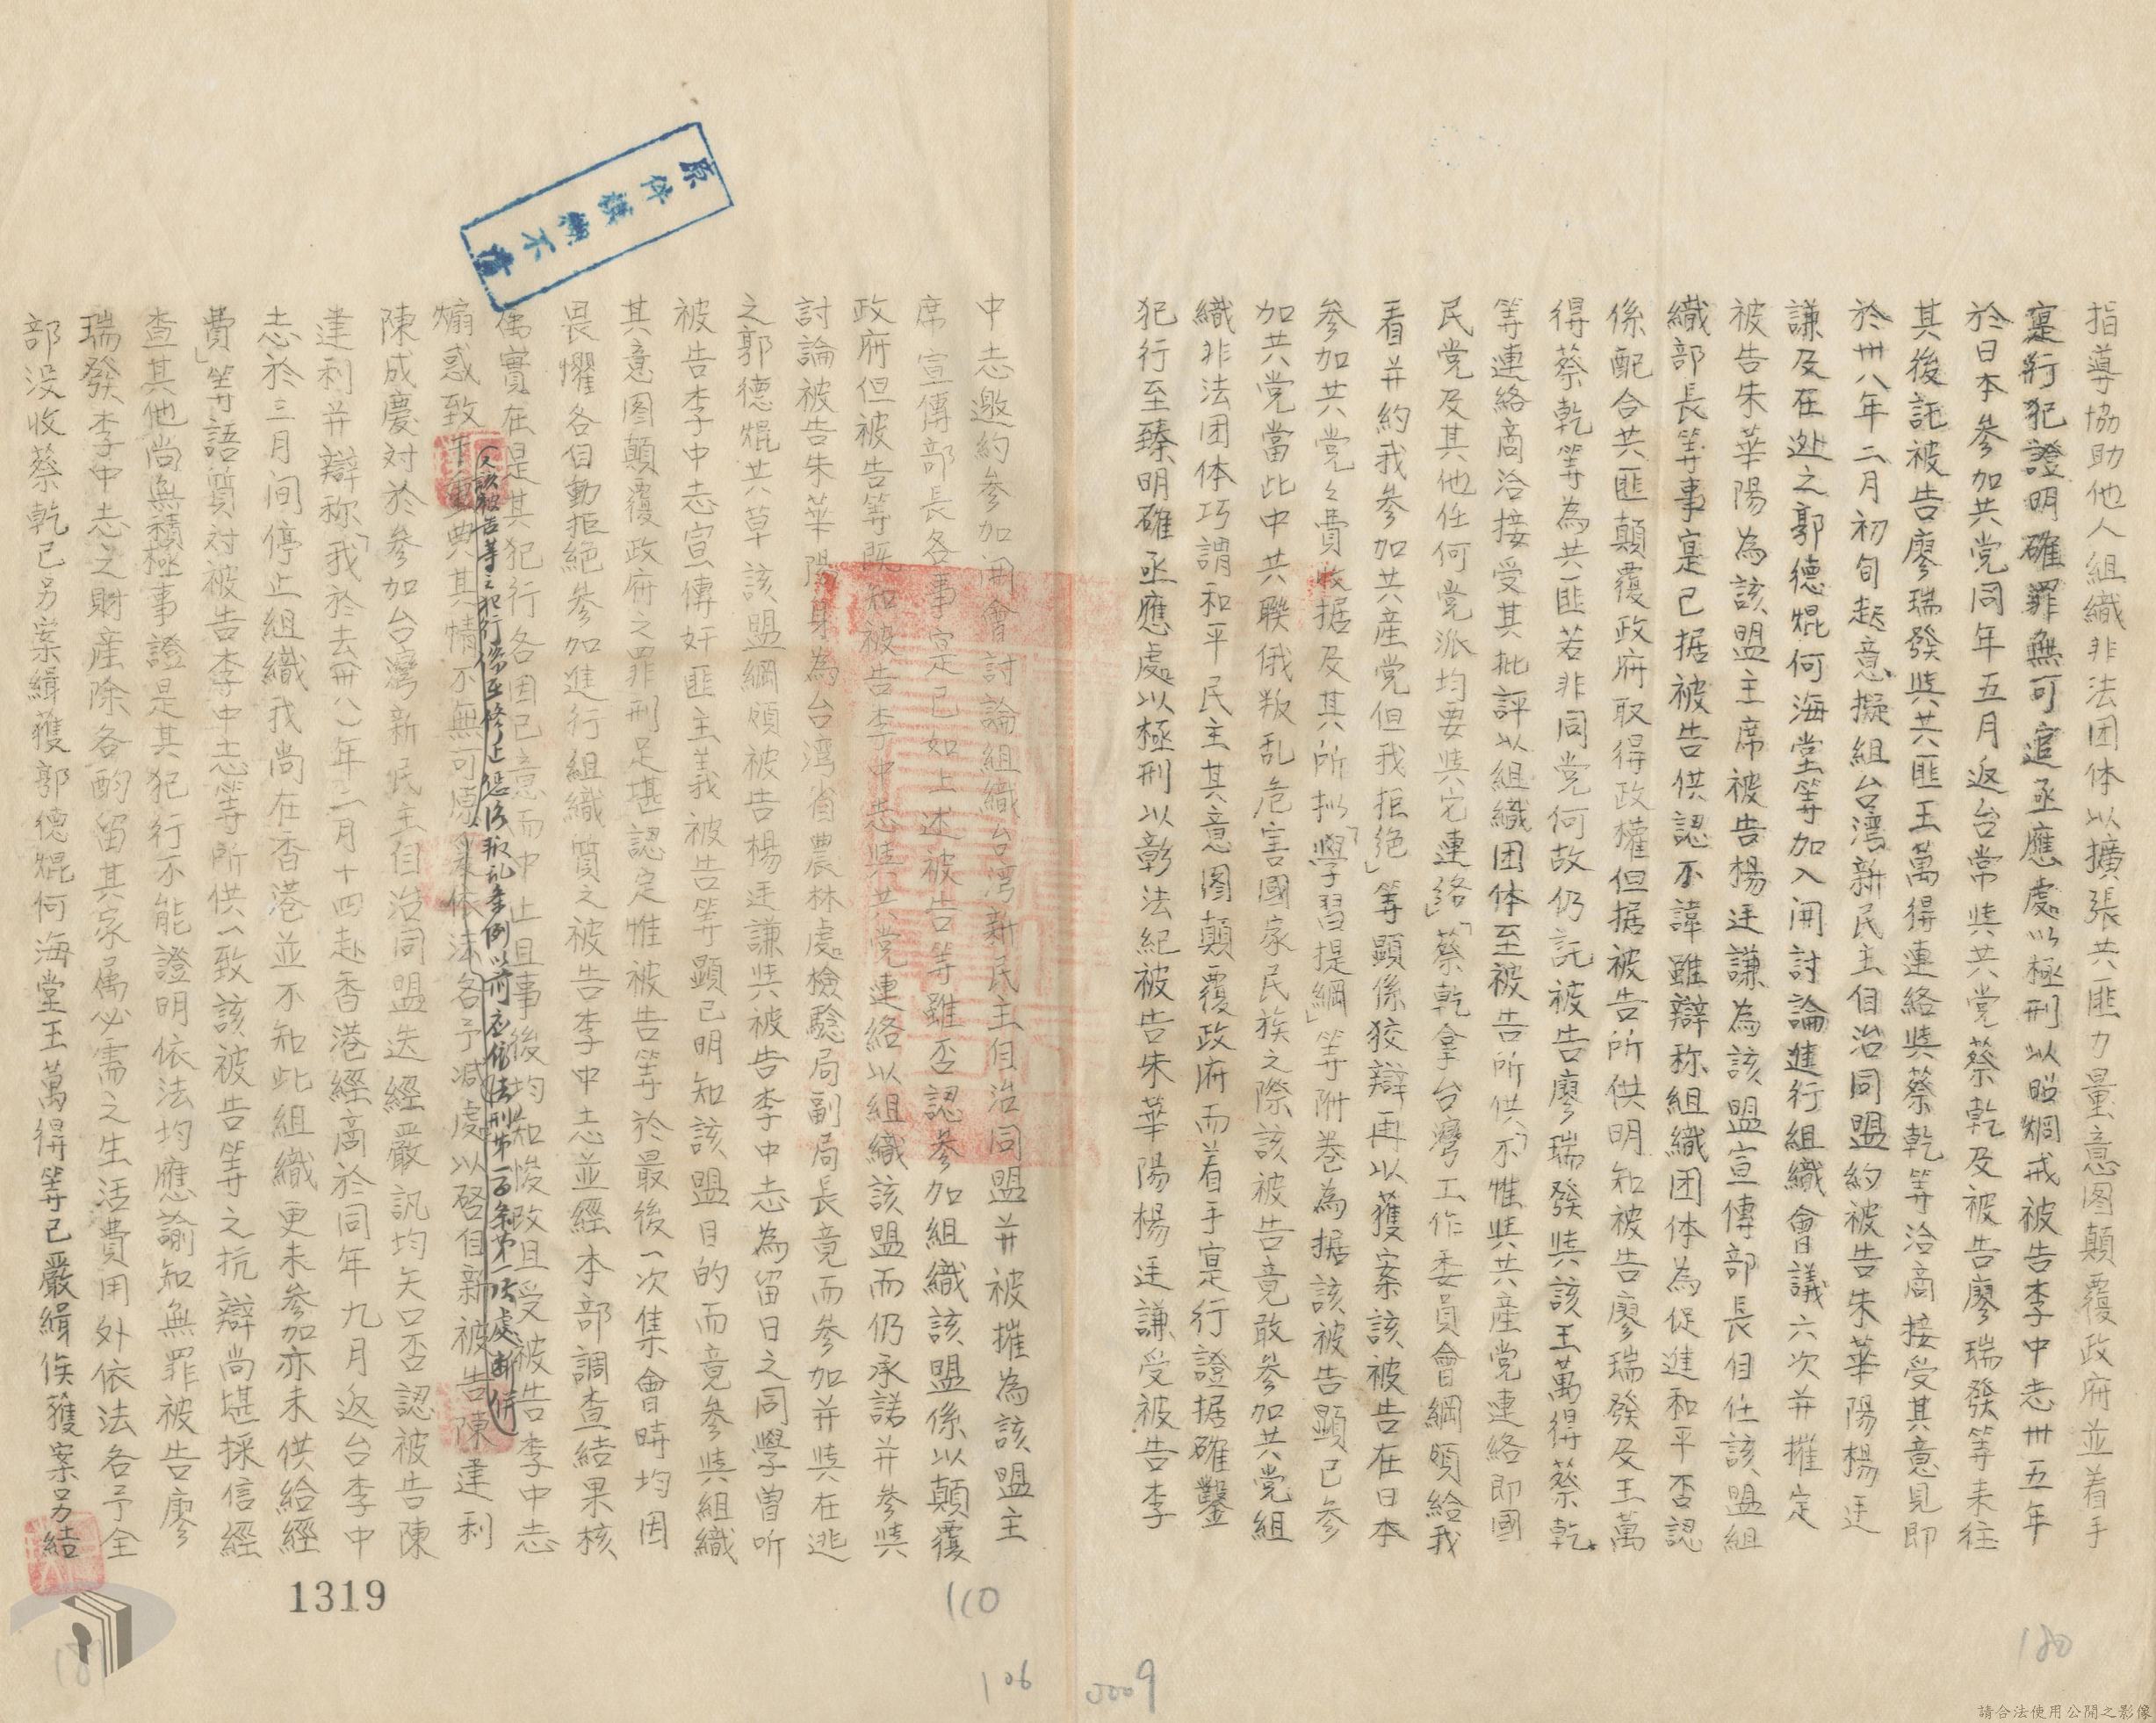 指導協助他人組織非法团体以擴張共匪力量意图顛覆政府並着手
寔行犯證明確罪無可逭亟應處以極刑以昭烱戒被告李中志卅五年
於日本參加共党同年五月返台常與共党蔡乾及被告廖瑞發等來往
其後託被告廖瑞發與共匪王萬得連絡與蔡乾等洽商接受其意見即
於卅八年二月初旬起意擬組台湾新民主自治同盟約被告朱華陽楊廷
謙及在逃之郭德焜何海堂等加入開討論進行組織會議六次并推定
被告朱華陽為該盟主席被告楊廷謙為該盟宣傳部長自任該盟組
織部長等事寔已据被告供認不諱雖辯称組織团体為促進和平否認
係配合共匪顛覆政府取得政權但据被告所供明知被告廖瑞發及王萬
得蔡乾等為共匪若非同党何故仍託被告廖瑞發與該王萬得蔡乾
等連絡商洽接受其批評以組織团体至被告所供「不惟與共產党連絡即國
民党及其他任何党派均要與它連絡」「蔡乾拿台灣工作委員會綱領給我
看并約我參加共產党但我拒絕」等顯係狡辯再以獲案該被告在日本
參加共党之党費收据及其所拟「學習提綱」等附卷為据該被告顯已參
加共党當此中共聯俄叛乱危害國家民族之際該被告竟敢參加共党組
織非法团体巧謂和平民主其意图顛覆政府而着手寔行證据確鑿
犯行至臻明確亟應處以極刑以彰法紀被告朱華陽楊廷謙受被告李
中志邀約參加開會討論組織台湾新民主自治同盟并被推為該盟主
席宣傳部長各事寔已如上述被告等雖否認參加組織該盟係以顛覆
政府但被告等既知被告李中志與共党連絡以組織該盟而仍承諾并參與
討論被告朱華陽身為台湾省農林處檢驗局副局長竟而參加并與在逃
之郭德焜共草該盟綱領被告楊廷謙與被告李中志為留日之同學曾听
被告李中志宣傳奸匪主義被告等顯已明知該盟目的而竟參與組織
其意图顛覆政府之罪刑足堪認定惟被告等於最後一次集會時均因
畏懼各自動拒絕參加進行組織質之被告李中志並經本部調查結果核
屬實在是其犯行各因己意而中止且事後均知悛改且受被告李中志
煽惑致干重典其情不無可原爰依法各予減處以啓自新被告陳建利
陳成慶対於參加台灣新民主自治同盟迭經嚴訊均矢口否認被告陳
建利并辯称「我於去卅八年二月十四赴香港經商於同年九月返台李中
志於三月间停止組織我尚在香港並不知此組織更未參加亦未供給經
費」等語質対被告李中志等所供一致該被告等之抗辯尚堪採信經
查其他尚無積極事證是其犯行不能證明依法均應諭知無罪被告廖
瑞發李中志之財產除各酌留其家屬必需之生活費用外依法各予全
部沒收蔡乾已另案緝獲郭德焜何海堂王萬得等已嚴緝俟獲案另結
原件模糊不清
1319
110
106
180
請合法使用公開之影像